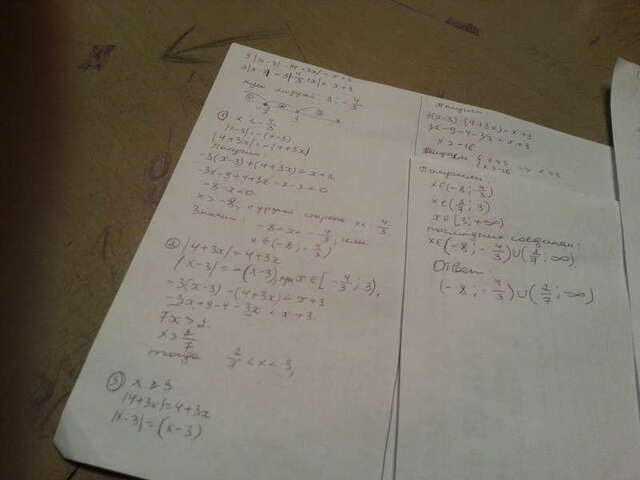 3|x-3| - |4+3x| < x+3
3|x-3| - 3|4/3+x| < x+3
нули модулей: 3; -4/3
① x < -4/3
|x-3| = -(x-3)
|4+3x| = -(4+3x)
Получим:
-3(x-3)+(4+3x) < x+3
-3x+9+4+3x-x-3<0
-8-x<0
x > -8, с другой стороны x < -4/3
Значит: -8 < x < -4/3, или
x ∈ (-8; -4/3)
② |4+3x| = 4+3x
|x-3| = -(x-3), при x ∈ [-4/3; 3),
-3(x-3) - (4+3x) < x+3
-3x+9-4-3x < x+3
7x > 2
x > 2/7
тогда 2/7 < x < 3,
③ x ≥ 3
|4+3x| = 4+3x
|x-3| = (x-3)
Получим:
3(x-3)-(4+3x) < x+3
3x-9-4-3x < x+3
x > -16
Получили:
x ∈ (-8; -4/3)
x ∈ (2/7; 3)
x ∈ [3; +∞)
x ∈ (-8; -4/3) ∪ (2/7; ∞)
Ответ:
(-8; -4/3) ∪ (2/7; ∞)